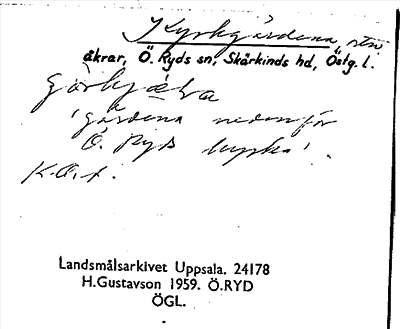 Kyrkgärdena,
åkrar, Ö. Ryds sn, Skärkinds hd, Östg. l.
'gärdena nedanför
Ö. Ryds kyrka'.
Landsmålsarkivet Uppsala. 24178
H.Gustavson 1959. Ö.RYD
ÖGL.